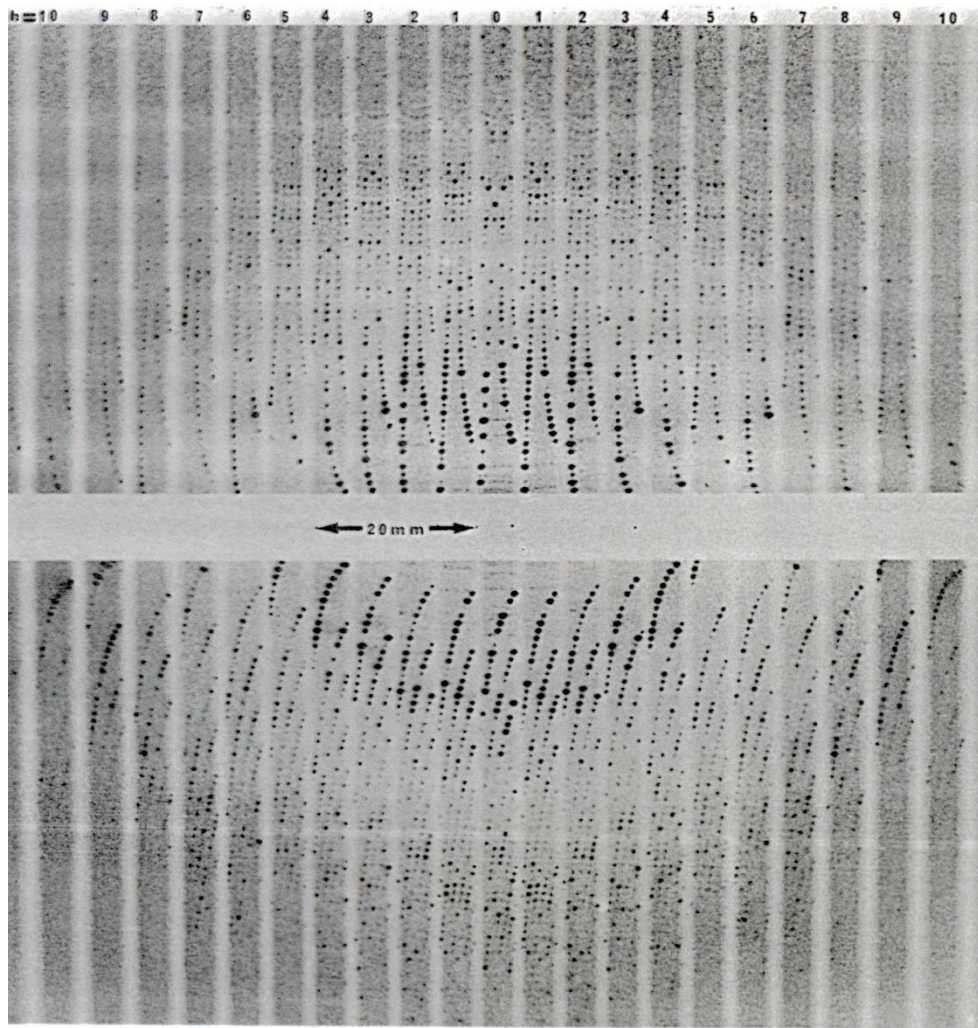 h=10 9 8 7 6 5 4 3 2 1 0 1 2 3 4 5 6 7 8 9 10
20mm